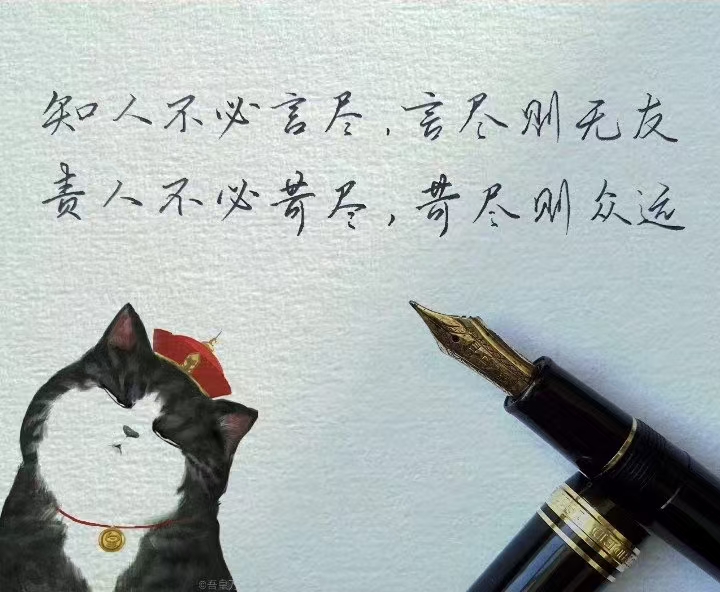 知人不必言尽,言尽则无友
责人不必苛尽,苛尽则众远
©吾皇